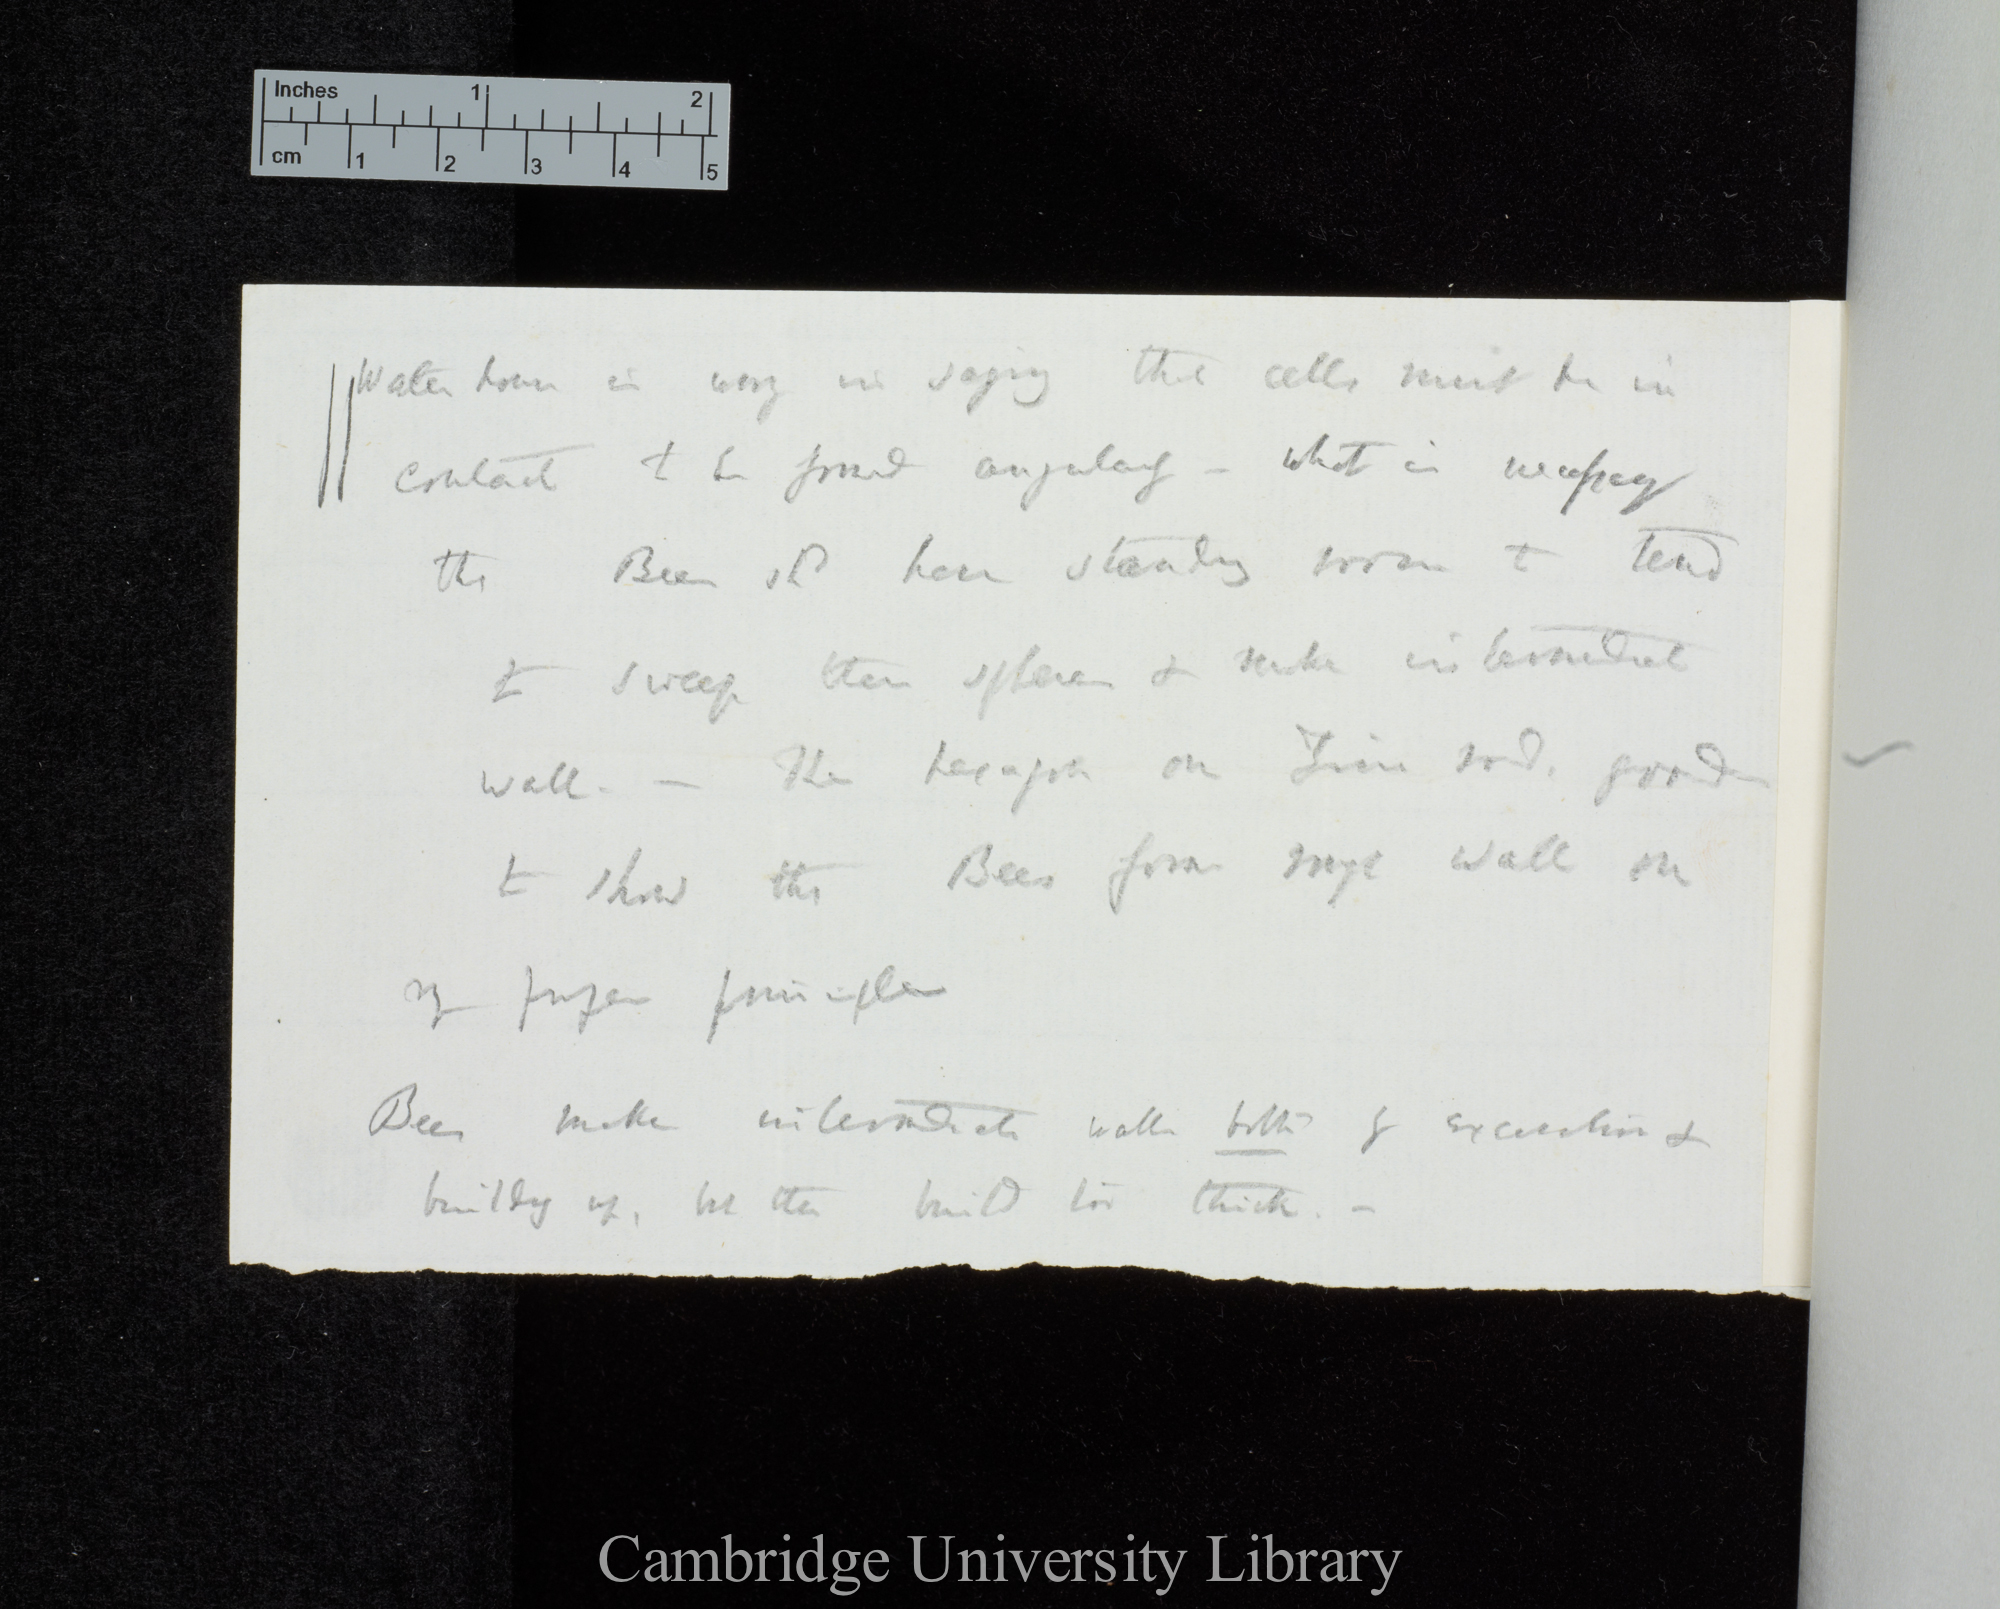 Inches 1 2
cm 1 2 3 4 5
Waterhouse is wrong in saying that cells must be in
contact to be formed angularly – what is necessary
that Bees shd have standing room & tend
to sweep their spheres & make intermediate
wall. — The hexagon on good
to show that Bees form wall on
my proper principles
Bees make intermediate walls both by excavation &
building up, but they build too thick. –
Cambridge University Library